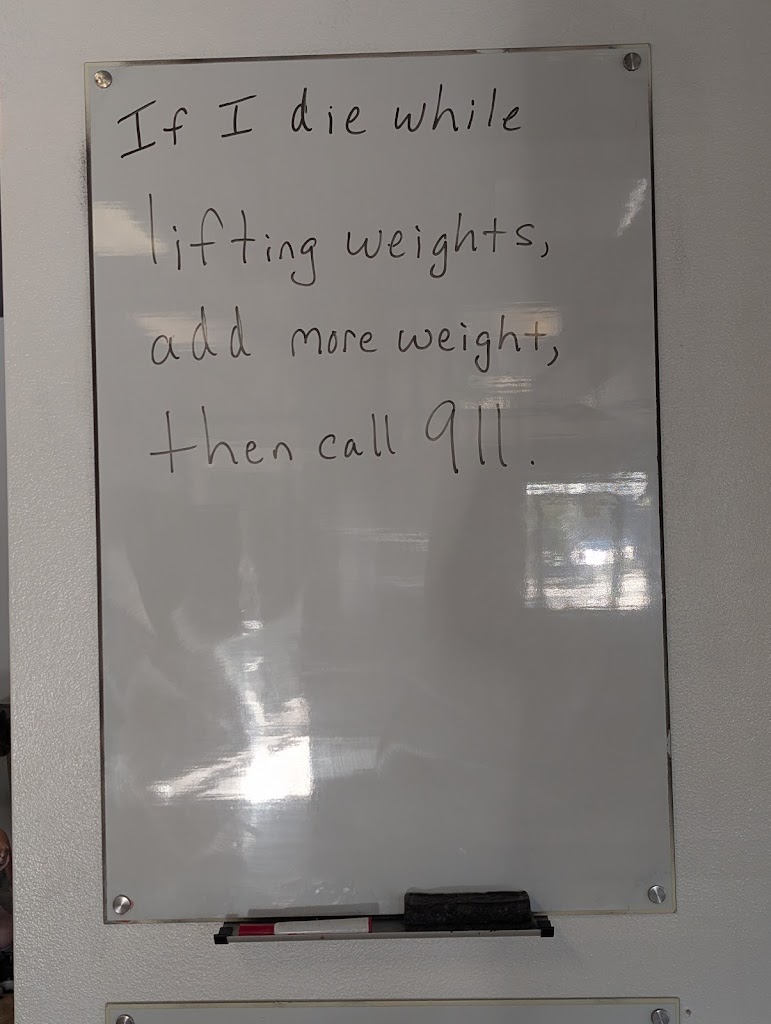 If I die while
lifting weights,
add more weight,
then call 911.